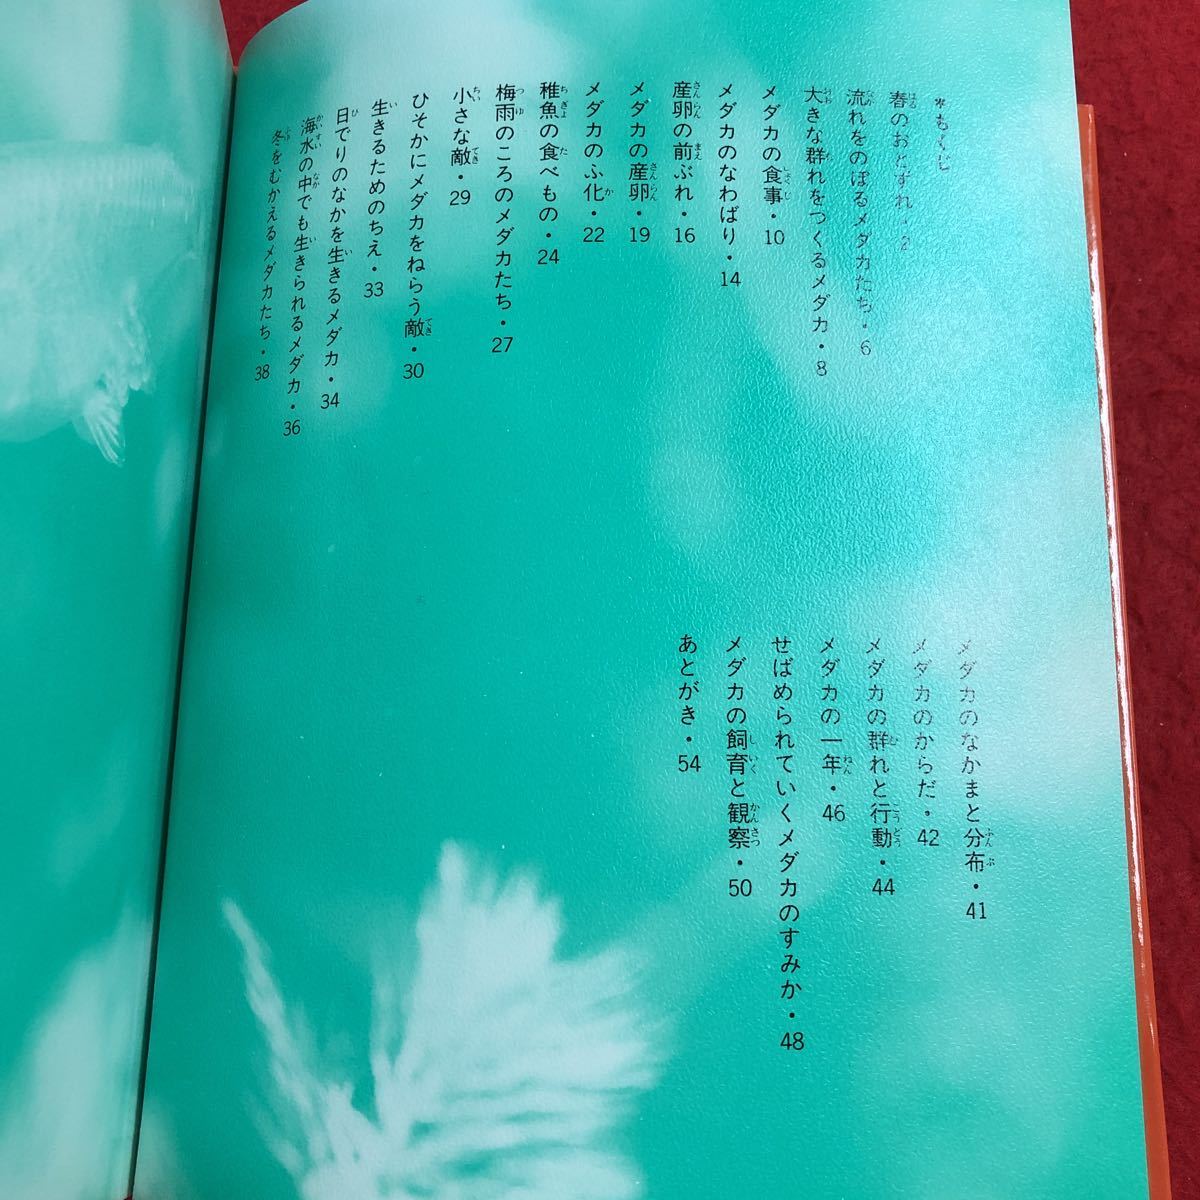 *もくじ
春のおとずれ・2
流れをのぼるメダカたち・6
大きな群れをつくるメダカ・8
メダカの食事・10
メダカのなわばり・14
産卵の前ぶれ・16
メダカの産卵・19
メダカのふ化・22
稚魚の食べもの・24
梅雨のころのメダカたち・27
小さな敵・29
ひそかにメダカをねらう敵・30
生きるためのちえ・33
日でりのなかを生きるメダカ・34
海水の中でも生きられるメダカ・36
冬をむかえるメダカたち・38
メダカのなかまと分布・41
メダカのからだ・42
メダカの群れと行動・44
メダカの一年・46
せばめられていくメダカのすみか・48
メダカの飼育と観察・50
あとがき・54